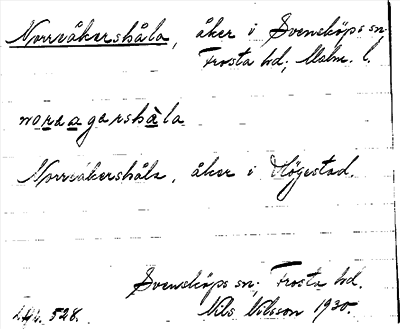 Norreåkershåla, åker i Svensköps sn,
Frosta hd, Malm. l.
noraagarshåla
Norreåkershåla, åker i Högestad.
Svensköps sn, Frosta hd.
528. Nils Nilsson 1930.